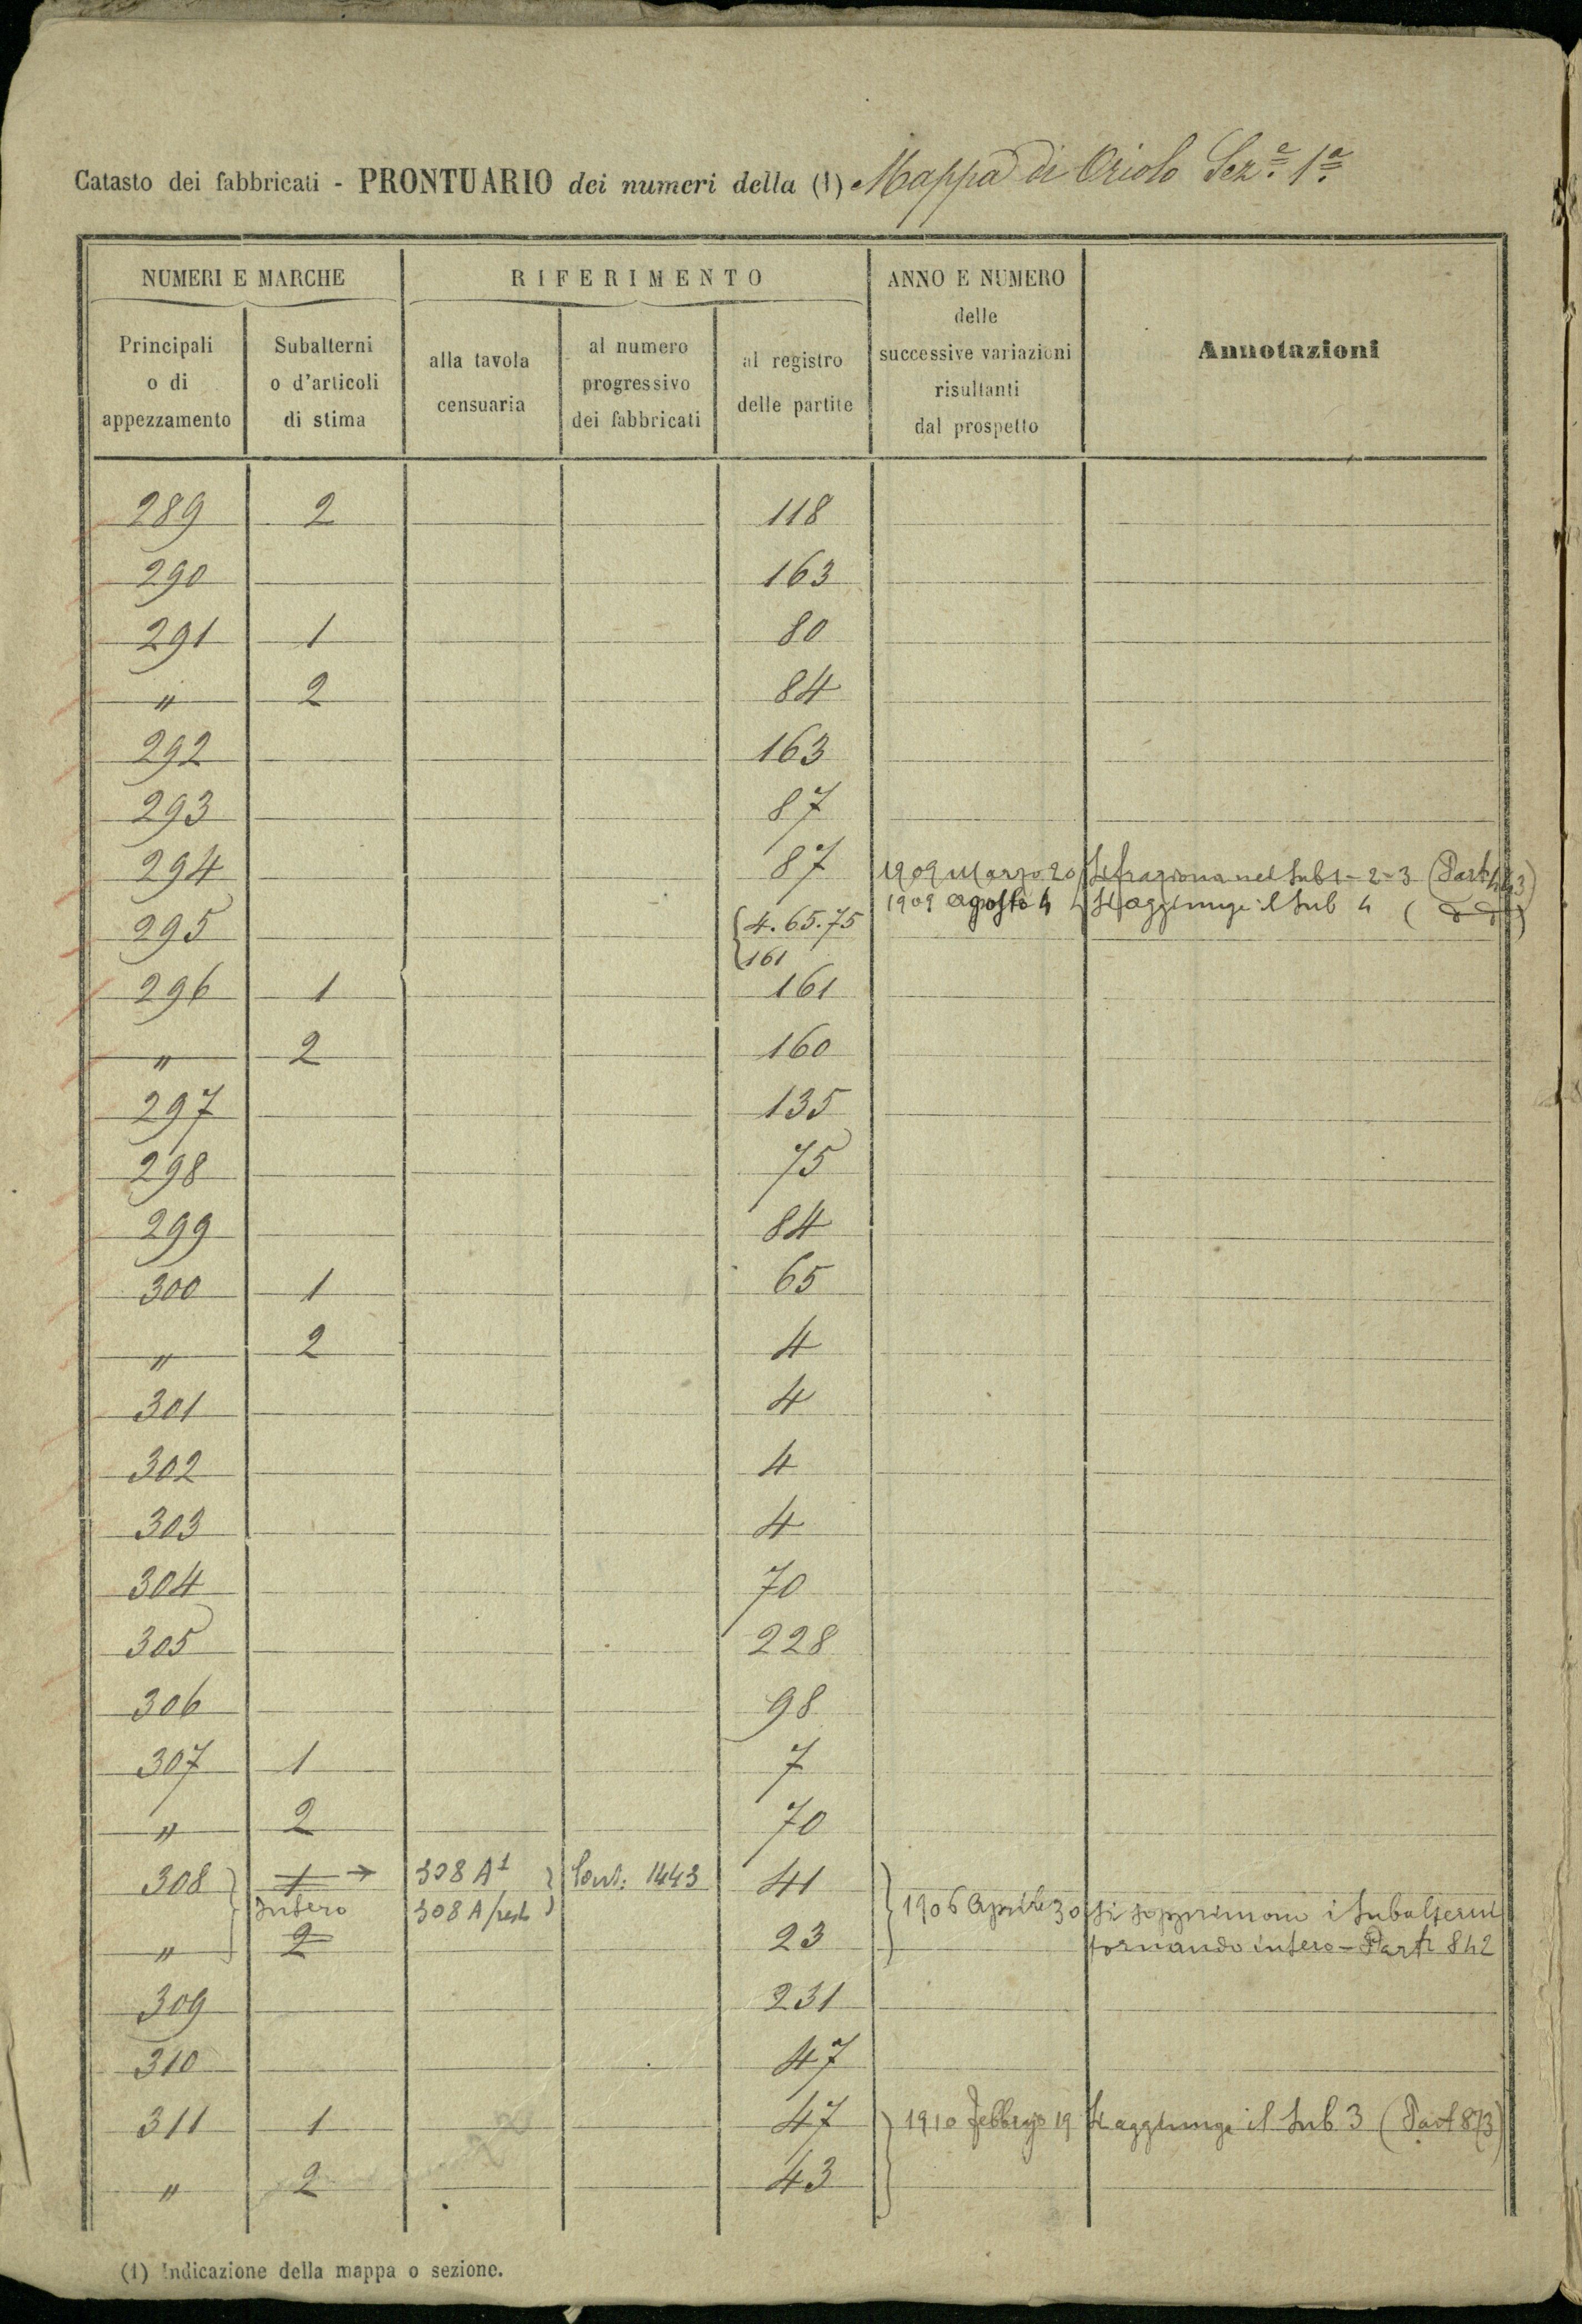 Catasto dei fabbricati - PRONTUARIO dei numeri della (1) Mappa di Oriolo Sez.ª 1.ª
NUMERI E MARCHE RIFERIMENTO ANNO E NUMERO delle successive variazioni risultanti dal prospetto Annotazioni
Principali o di appezzamento Subalterni o d'articoli di stima alla tavola censuaria al numero progressivo dei fabbricati al registro delle partite
289 2 118
290 163
291 1 80
" 2 84
292 163
293 87
294 87 1909 Marzo 20 Si fraziona nel Sub 1-2-3 (Part
1909 Agosto 4 Si aggiunge il Sub 4
295 4.65.75
161
296 1 161
" 2 160
297 135
298 75
299 84
300 1 65
" 2 4
301 4
302 4
303 4
304 70
305 228
306 98
307 1 7
" 2 70
308 1 → 308 A1 1443 41
Intero 308 A/resto 1906 Aprile 30 Si sopprimono i Subalterni
" 2 23 tornando intero - Part 842
309 231
310 47
311 1 47 1910 Febbrajo 19 Si aggiunge il Sub 3 (Part 873)
" 2 43
(1) Indicazione della mappa o sezione.